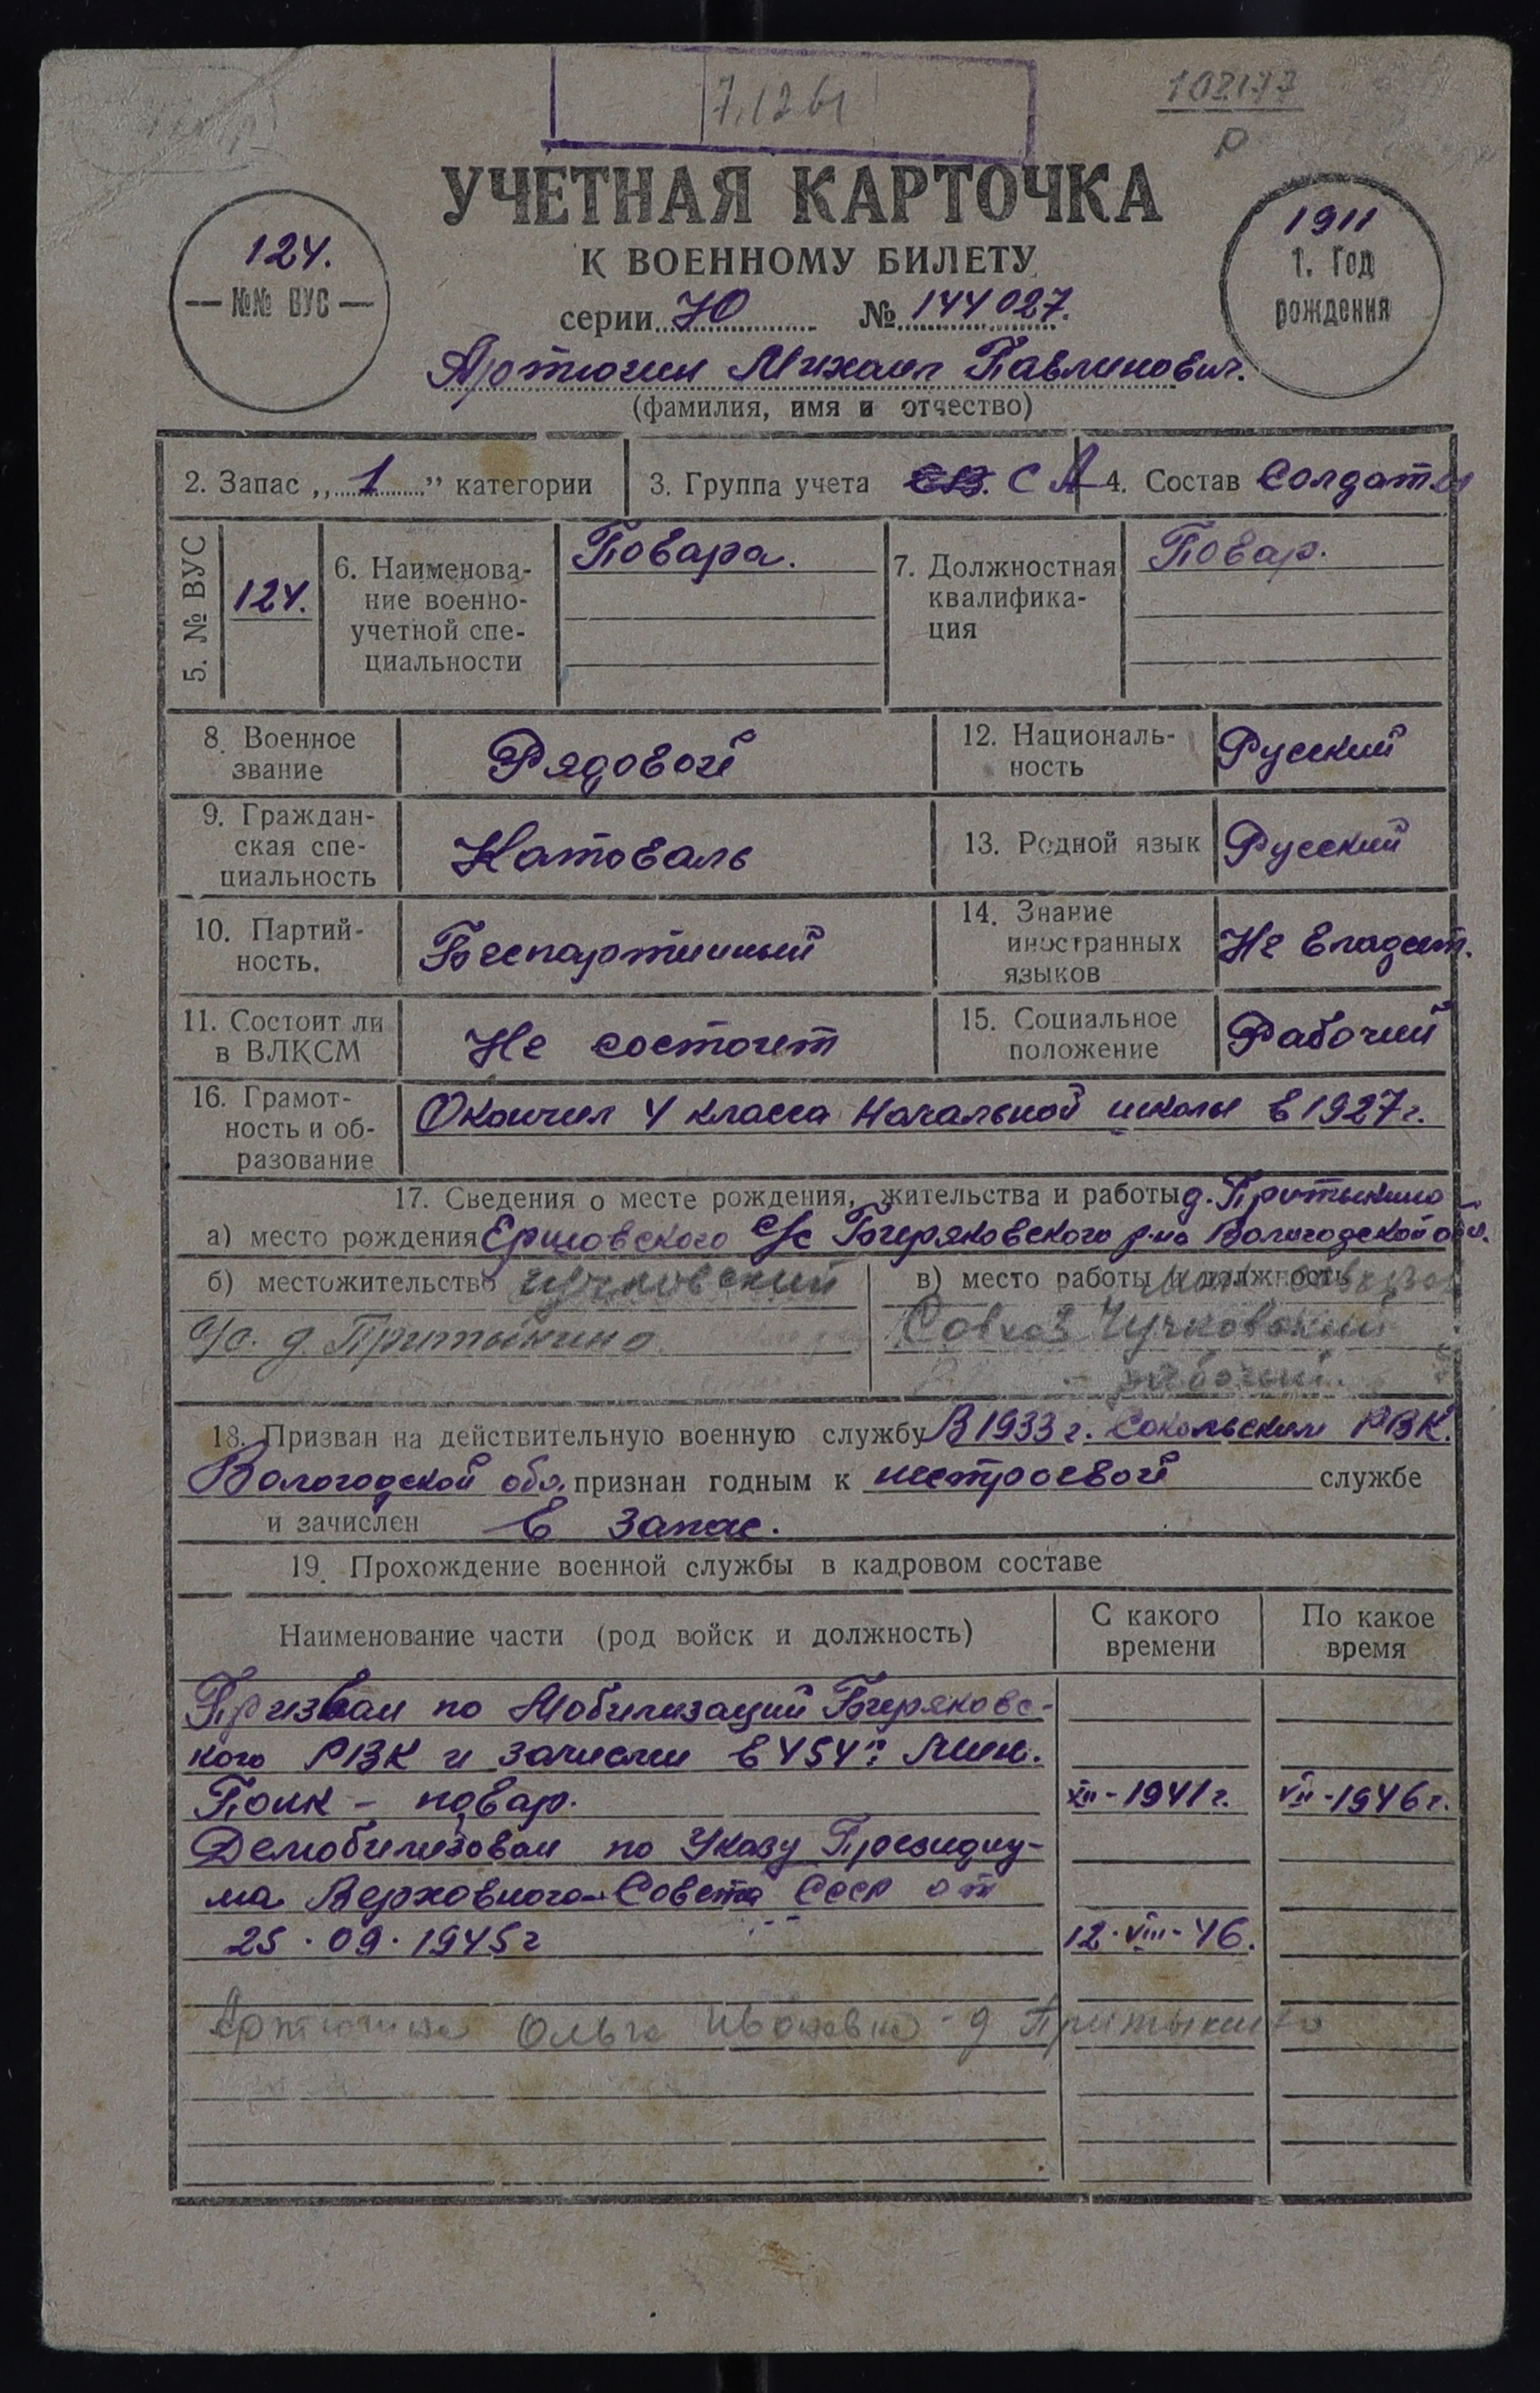 7.12 61
102177
Р
УЧЕТНАЯ КАРТОЧКА
К ВОЕННОМУ БИЛЕТУ
124.
№№ ВУС
1911
1. Год
рождения
серии Ю № 144027.
Артюгин Михаил Павлинович.
(фамилия, имя и отчество)
2. Запас „1” категории
3. Группа учета СВ. СА
4. Состав Солдаты
5. № ВУС
124.
6. Наименова-
ние военно-
учетной спе-
циальности
Повара.
7. Должностная
квалифика-
ция
Повар.
8. Военное
звание
Рядовой
12. Националь-
ность
Русский
9. Граждан-
ская спе-
циальность
Катоваль
13. Родной язык
Русский
10. Партий-
ность.
Беспартийный
14. Знание
иностранных
языков
Не владеет.
11. Состоит ли
в ВЛКСМ
Не состоит
15. Социальное
положение
Рабочий
16. Грамот-
ность и об-
разование
Окончил 4 класса Начальной школы в 1927г.
17. Сведения о месте рождения, жительства и работы д. Притыкино
а) место рождения Ершовского с/с Биряковского р-на Вологодской обл.
б) местожительство Чучковский
с/с. д. Притыкино
в) место работы и должность
Совхоз Чучковский
рабочий.
18. Призван на действительную военную службу В 1933г. Сокольским РВК.
Вологодской обл. признан годным к нестроевой службе
и зачислен в запас.
19. Прохождение военной службы в кадровом составе
Наименование части (род войск и должность)
С какого
времени
По какое
время
Призван по Мобилизаций Биряковс-
кого РВК и зачислен в 454й Мин.
Полк - повар. XII-1941г. VII-1946г.
Демобилизован по Указу Президиу-
ма Верховного Совета СССР от
25.09.1945г 12.VIII-46.
Артюгина Ольга Ивановна - д Притыкино